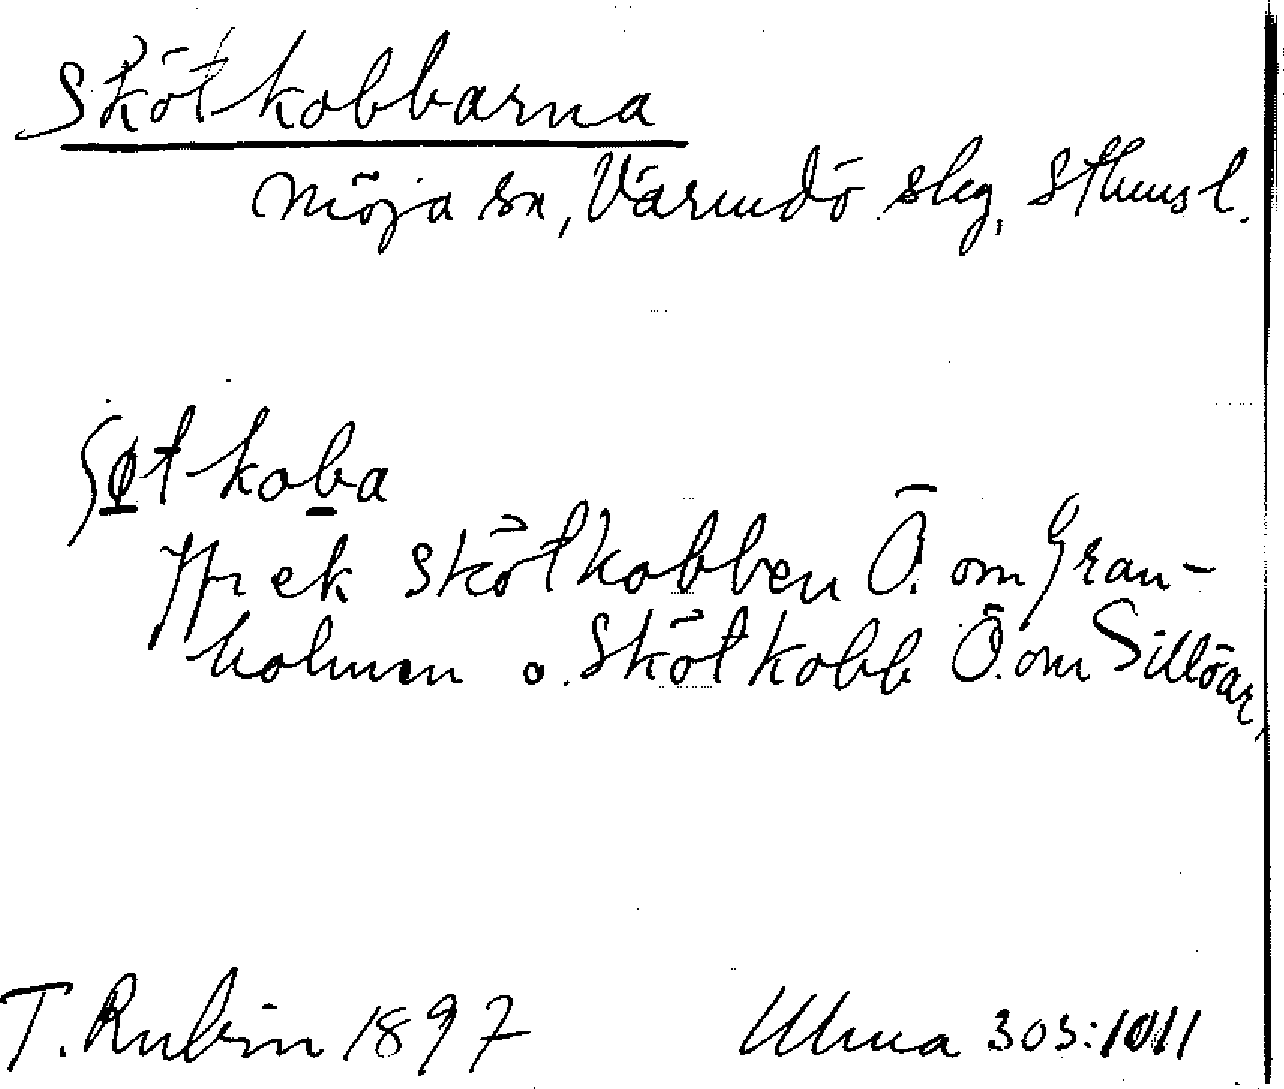 Skötkobbarna
Möja sn, Värmdö skg, Sthms l.
ʃøtkoba
Jfr ek Skötkobben Ö. om Gran-
holmen o. Skötkobb Ö. om Sillöar,
T. Rubin 1897
Ulma 303:1011